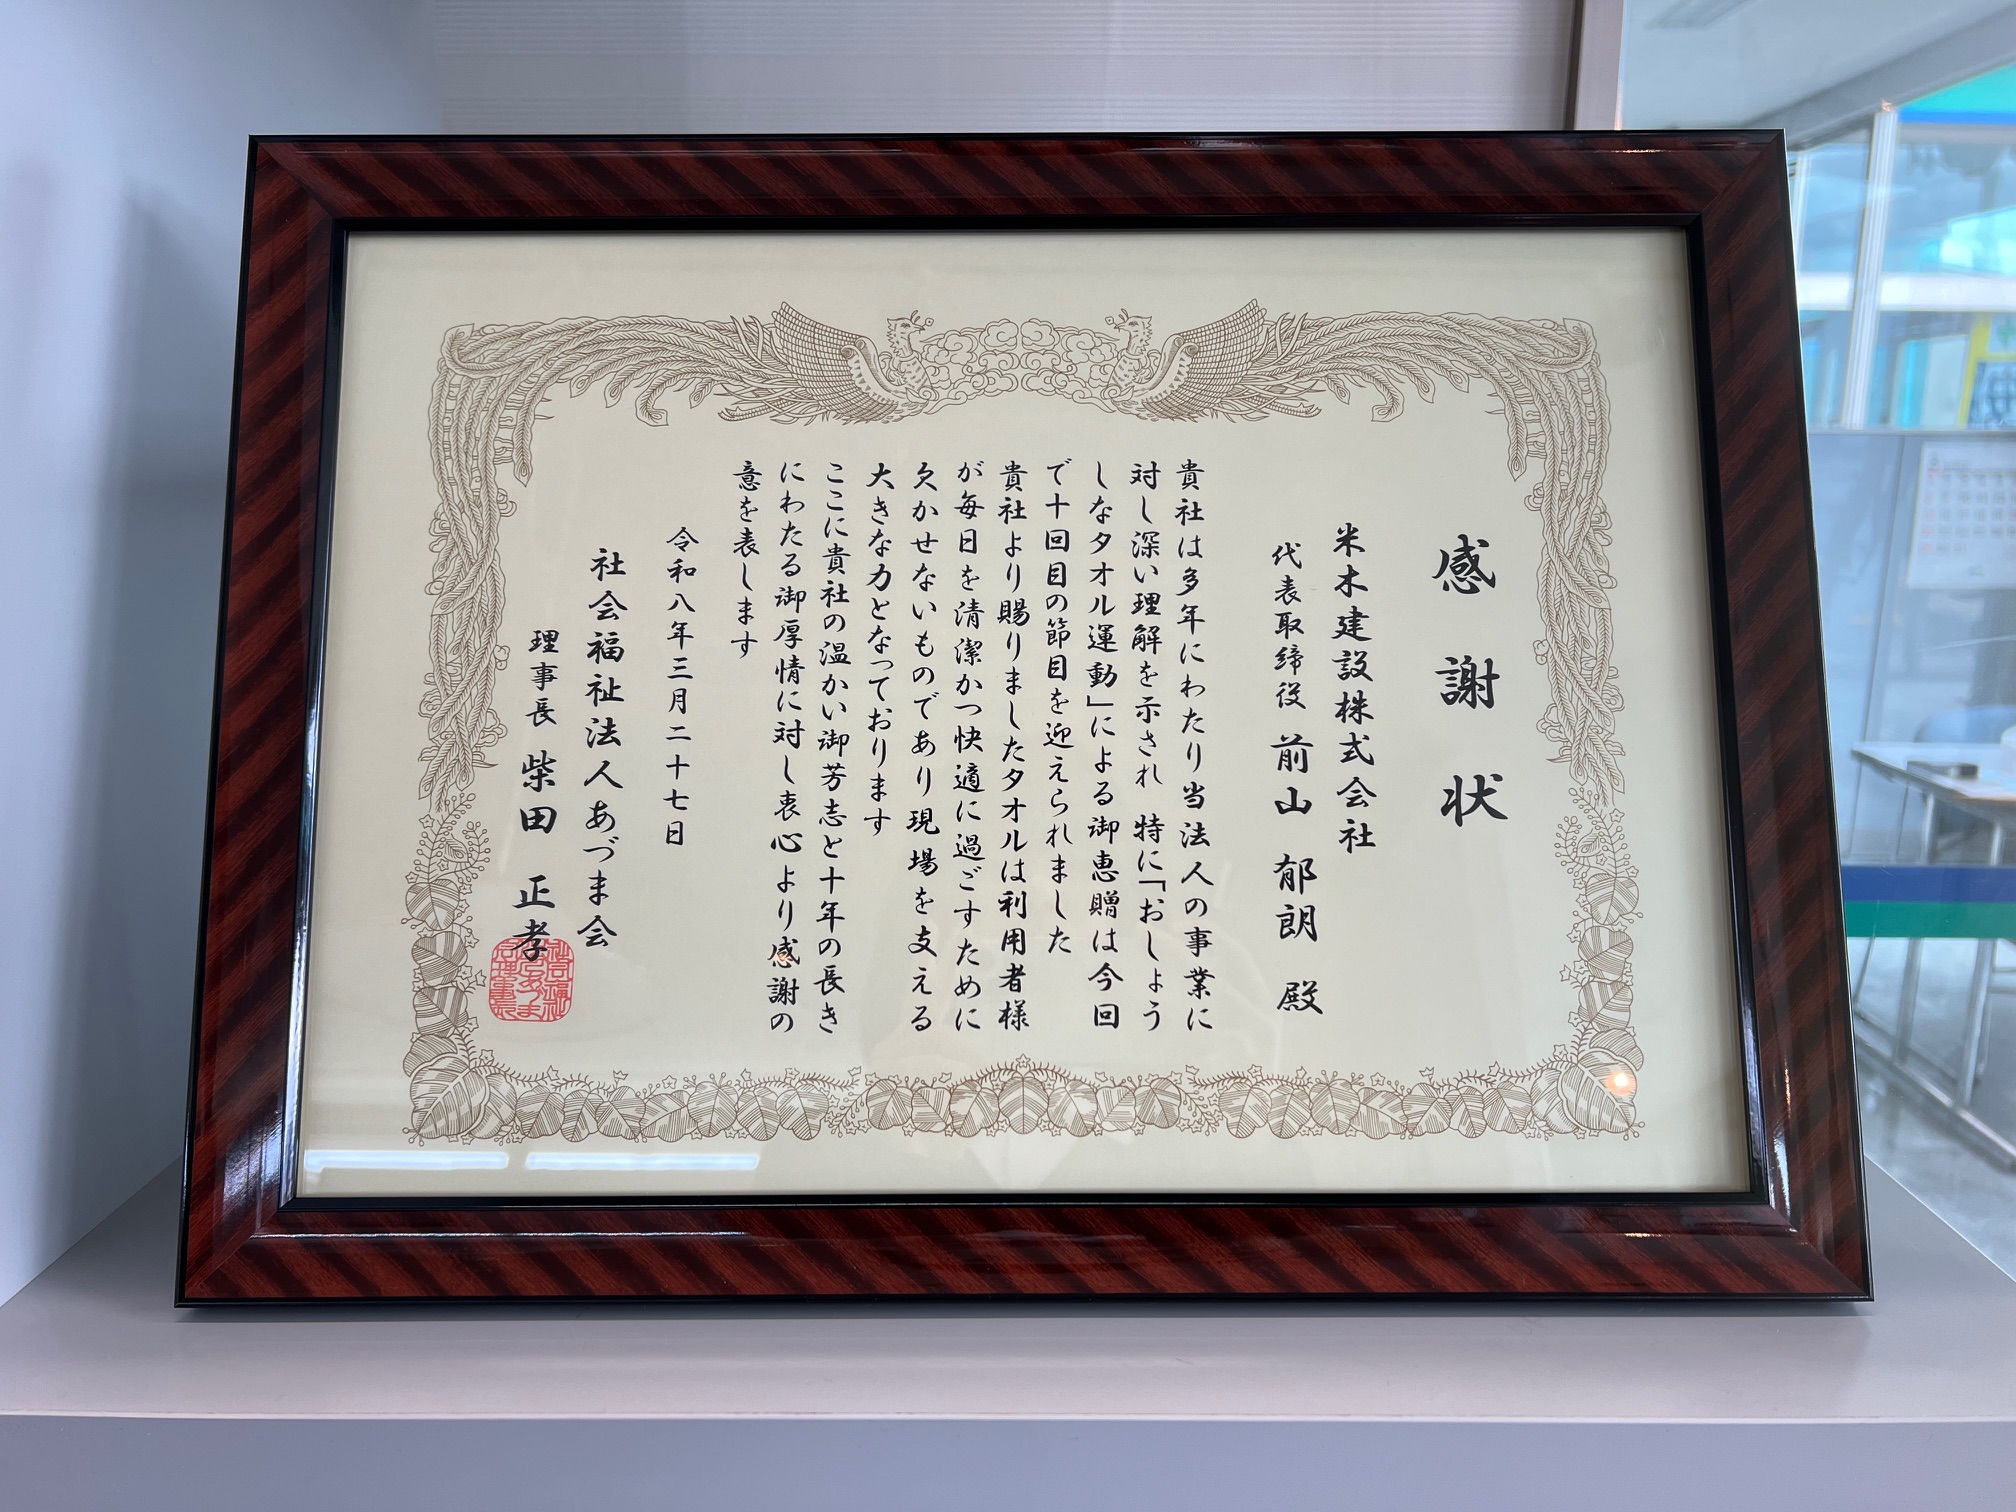 感謝状
米木建設株式会社
代表取締役 前山 郁朗 殿
貴社は多年にわたり当法人の事業に
対し深い理解を示され 特に「おしょう
しなタオル運動」による御恵贈は今回
で十回目の節目を迎えられました
貴社より賜りましたタオルは利用者様
が毎日を清潔かつ快適に過ごすために
欠かせないものであり現場を支える
大きな力となっております
ここに貴社の温かい御芳志と十年の長き
にわたる御厚情に対し衷心より感謝の
意を表します
令和八年三月二十七日
社会福祉法人あづま会
理事長 柴田 正孝